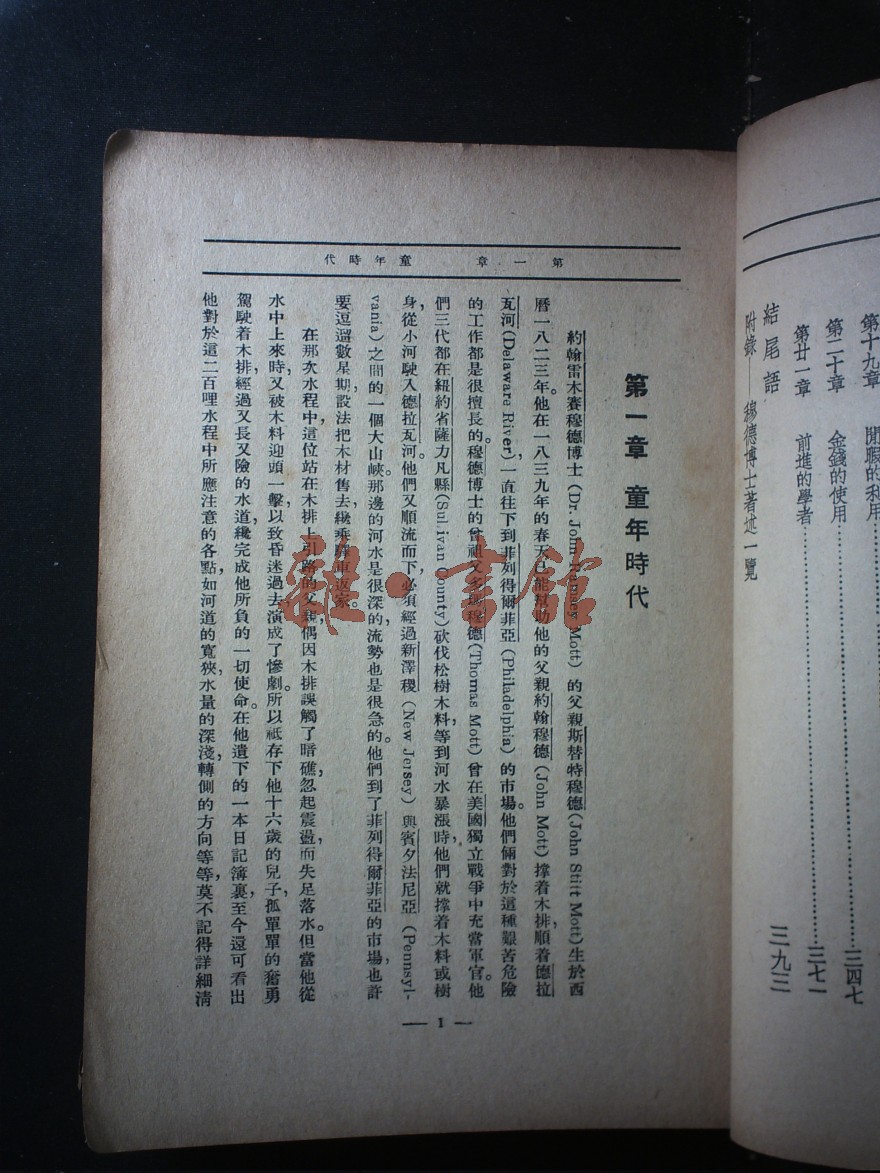 結尾語
三九三
附錄——穆德博士著述一覽
第十九章 閒暇的利用
第二十章 金錢的使用
三四七
第廿一章 前進的學者
三七一
第一章 童年時代
第一章 童年時代
約翰雷木賽穆德博士(Dr. John Rumney Mott)的父親斯替特穆德(John Stitt Mott)生於西
曆一八二三年。他在一八三九年的春天已能幫助他的父親約翰穆德(John Mott)撐着木排,順着德拉
瓦河(Delaware River),一直往下到菲列得爾菲亞(Philadelphia)的市場。他們倆對於這種艱苦危險
的工作都是很擅長的。穆德博士的曾祖父多瑪穆德(Thomas Mott)曾在美國獨立戰爭中充當軍官。他
們三代都在紐約省薩力凡縣(Sullivan County)砍伐松樹木料,等到河水暴漲時,他們就撐着木料或樹
身,從小河駛入德拉瓦河。他們又順流而下,必須經過新澤稷(New Jersey)與賓夕法尼亞(Pennsyl-
vania)之間的一個大山峽。那邊的河水是很深的,流勢也是很急的。他們到了菲列得爾菲亞的市場,也許
要逗遛數星期,設法把木材售去,纔乘驛車返家。
在那次水程中,這位站在木排上引路的父親,偶因木排誤觸了暗礁,忽起震盪,而失足落水。但當他從
水中上來時,又被木料迎頭一擊,以致昏迷過去,演成了慘劇。所以祇存下他十六歲的兒子,孤單單的奮勇
駕駛着木排,經過又長又險的水道,纔完成他所負的一切使命。在他遺下的一本日記簿裏,至今還可看出
他對於這二百哩水程中所應注意的各點,如河道的寬狹,水量的深淺,轉側的方向等等,莫不記得詳細清
— 1 —
雜·書館